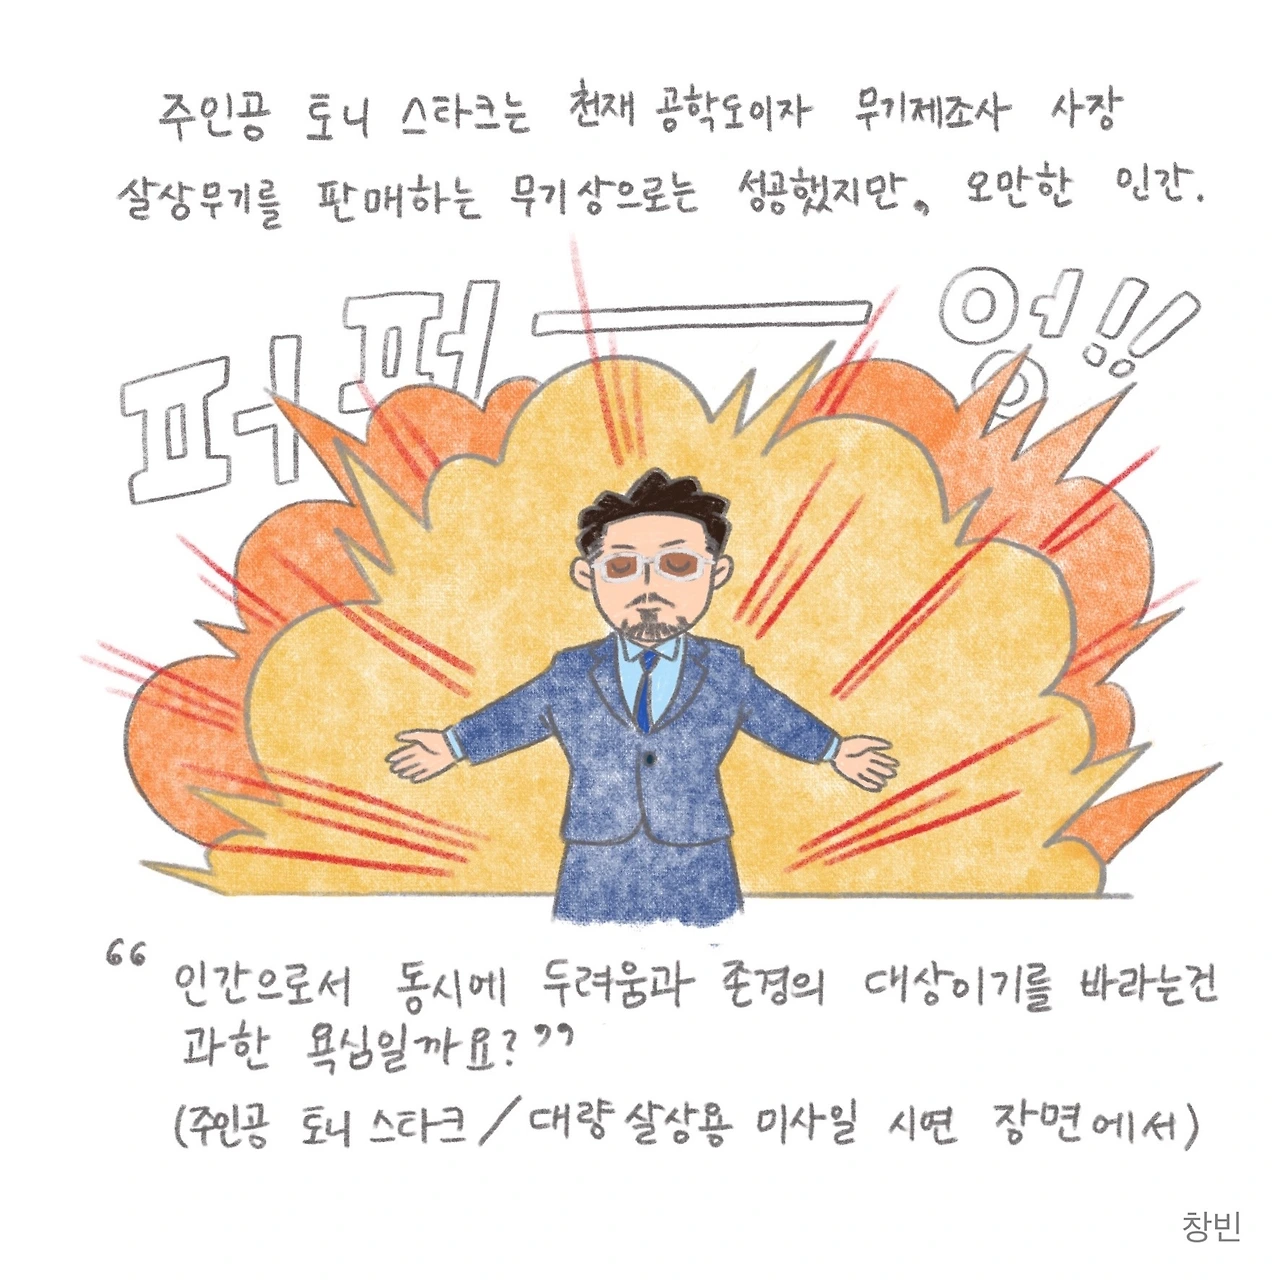 주인공 토니 스타크는 천재 공학도이자 무기제조사 사장
살상무기를 판매하는 무기상으로는 성공했지만, 오만한 인간.
퍼퍼ㅡ엉!!
“인간으로서 동시에 두려움과 존경의 대상이기를 바라는건
과한 욕심일까요?”
(주인공 토니 스타크/대량 살상용 미사일 시연 장면에서)
창빈